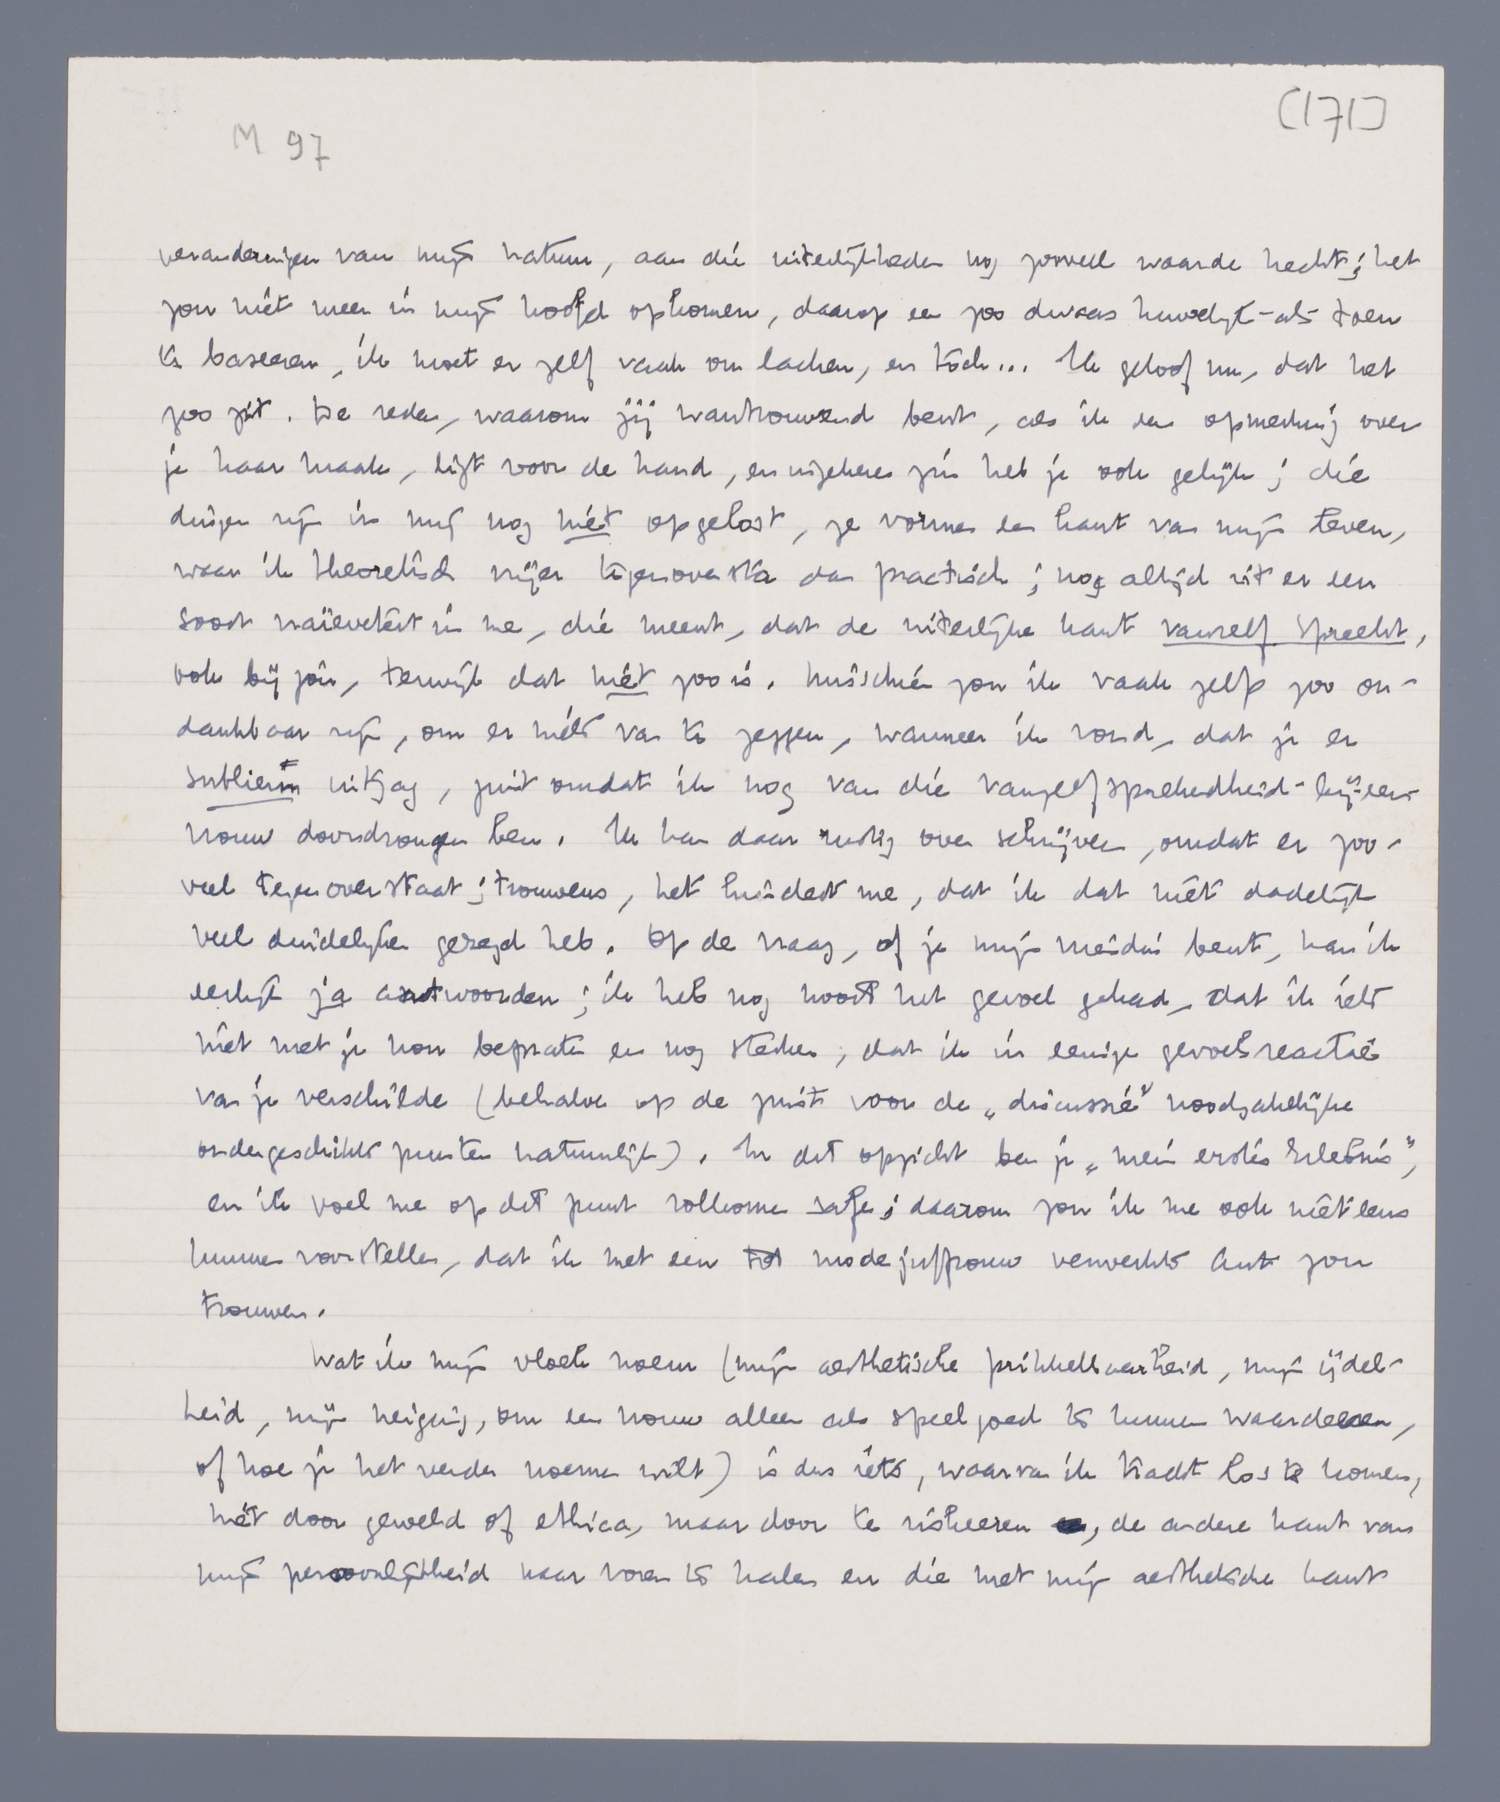 [171]
M 97
veranderingen van mijn natuur, aan die uiterlijkheden nog zooveel waarde hecht; het
zou niet meer in mijn hoofd opkomen, daarop een zoo dwaas huwelijk-als toen
te baseeren, ik moet er zelf vaak om lachen, en toch... Ik geloof nu, dat het
zoo zit. De reden, waarom jij wantrouwend bent, als ik een opmerking over
je haar maak, ligt voor de hand, en in zekeren zin heb je ook gelijk; die
dingen zijn in mij nog niet opgelost, ze vormen een kant van mijn leven,
waar ik theoretisch vrijer tegenover sta dan practisch; nog altijd zit er een
soort naïeveteit in me, die meent, dat de uiterlijke kant vanzelf spreekt,
ook bij jou, terwijl dat niet zoo is. Misschien zou ik vaak zelfs zoo on-
dankbaar zijn, om er niets van te zeggen, wanneer ik vond, dat je er
subliem uitzag, juist omdat ik nog van die vanzelfsprekendheid-bij-een-
vrouw doordrongen ben. Ik kan daar rustig over schrijven, omdat er zoo-
veel tegenover staat; trouwens, het hindert me, dat ik dat niet dadelijk
veel duidelijker gezegd heb. Op de vraag, of je mijn vriendin bent, kan ik
eerlijk ja antwoorden; ik heb nog nooit het gevoel gehad, dat ik iets
niet met je kon bepraten en nog sterker, dat ik in eenige gevoelsreactie
van je verschilde (behalve op de juist voor de „discussie" noodzakelijke
ondergeschikte punten natuurlijk). In dit opzicht ben je „mein erstes Erlebnis",
en ik voel me op dit punt volkomen safe; daarom zou ik me ook niet eens
kunnen voorstellen, dat ik met een modejuffrouw Ant zou
trouwen.
Wat ik mijn vloek noem (mijn aesthetische prikkelbaarheid, mijn ijdel-
heid, mijn neiging, om een vrouw alleen als speelgoed te kunnen waardeeren,
of hoe je het verder noemen wilt) is dus iets, waarvan ik tracht los te komen,
niet door geweld of ethica, maar door te riskeeren, de andere kant van
mijn persoonlijkheid naar voren te halen en die met mijn aesthetische kant